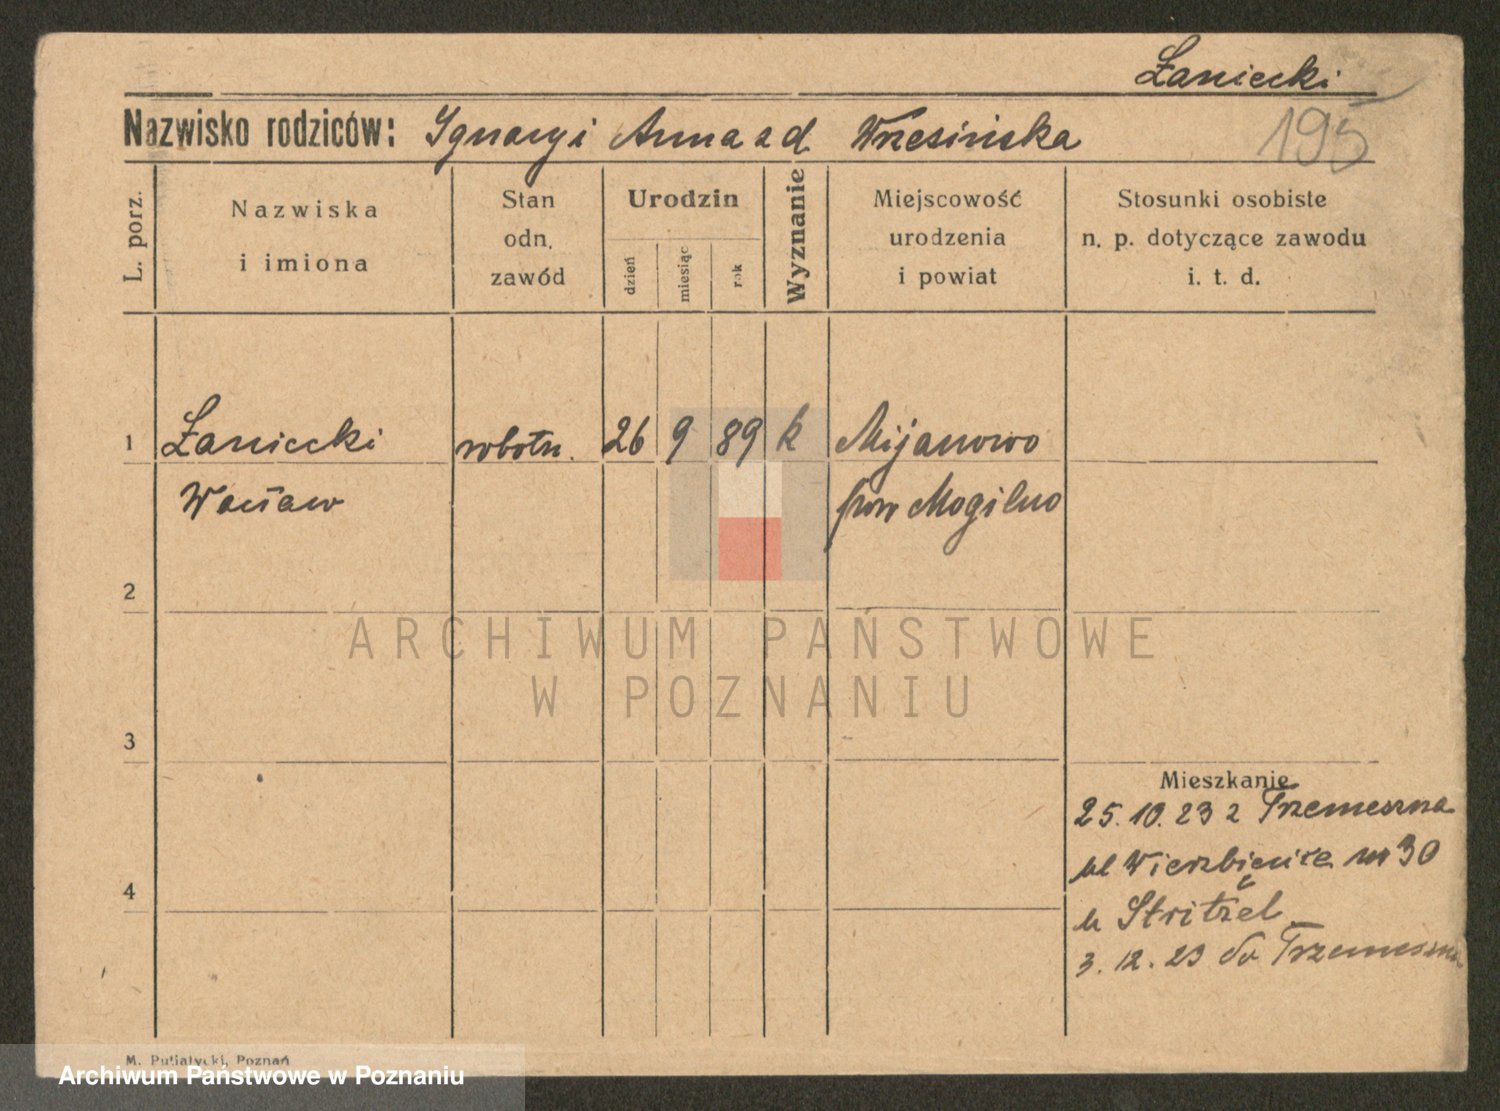 Łaniecki
Nazwisko rodziców: Ignacy i Anna z d. Wrzesińska
195
L. porz.
Nazwiska
i imiona
Stan
odn.
zawód
Urodzin
dzień
miesiąc
rok
Wyznanie
Miejscowość
urodzenia
i powiat
Stosunki osobiste
n. p. dotyczące zawodu
i. t. d.
1 Łaniecki robotn. 26 9 89 k Mijanowo
Wacław pow Mogilno
2
ARCHIWUM PAŃSTWOWE
W POZNANIU
3
Mieszkanie
25. 10. 23 z Trzemeszna
ul Wierzbięcice nr 30
4
u Stritzel
3. 12. 23 do Trzemeszna
M. Putiatycki, Poznań
Archiwum Państwowe w Poznaniu